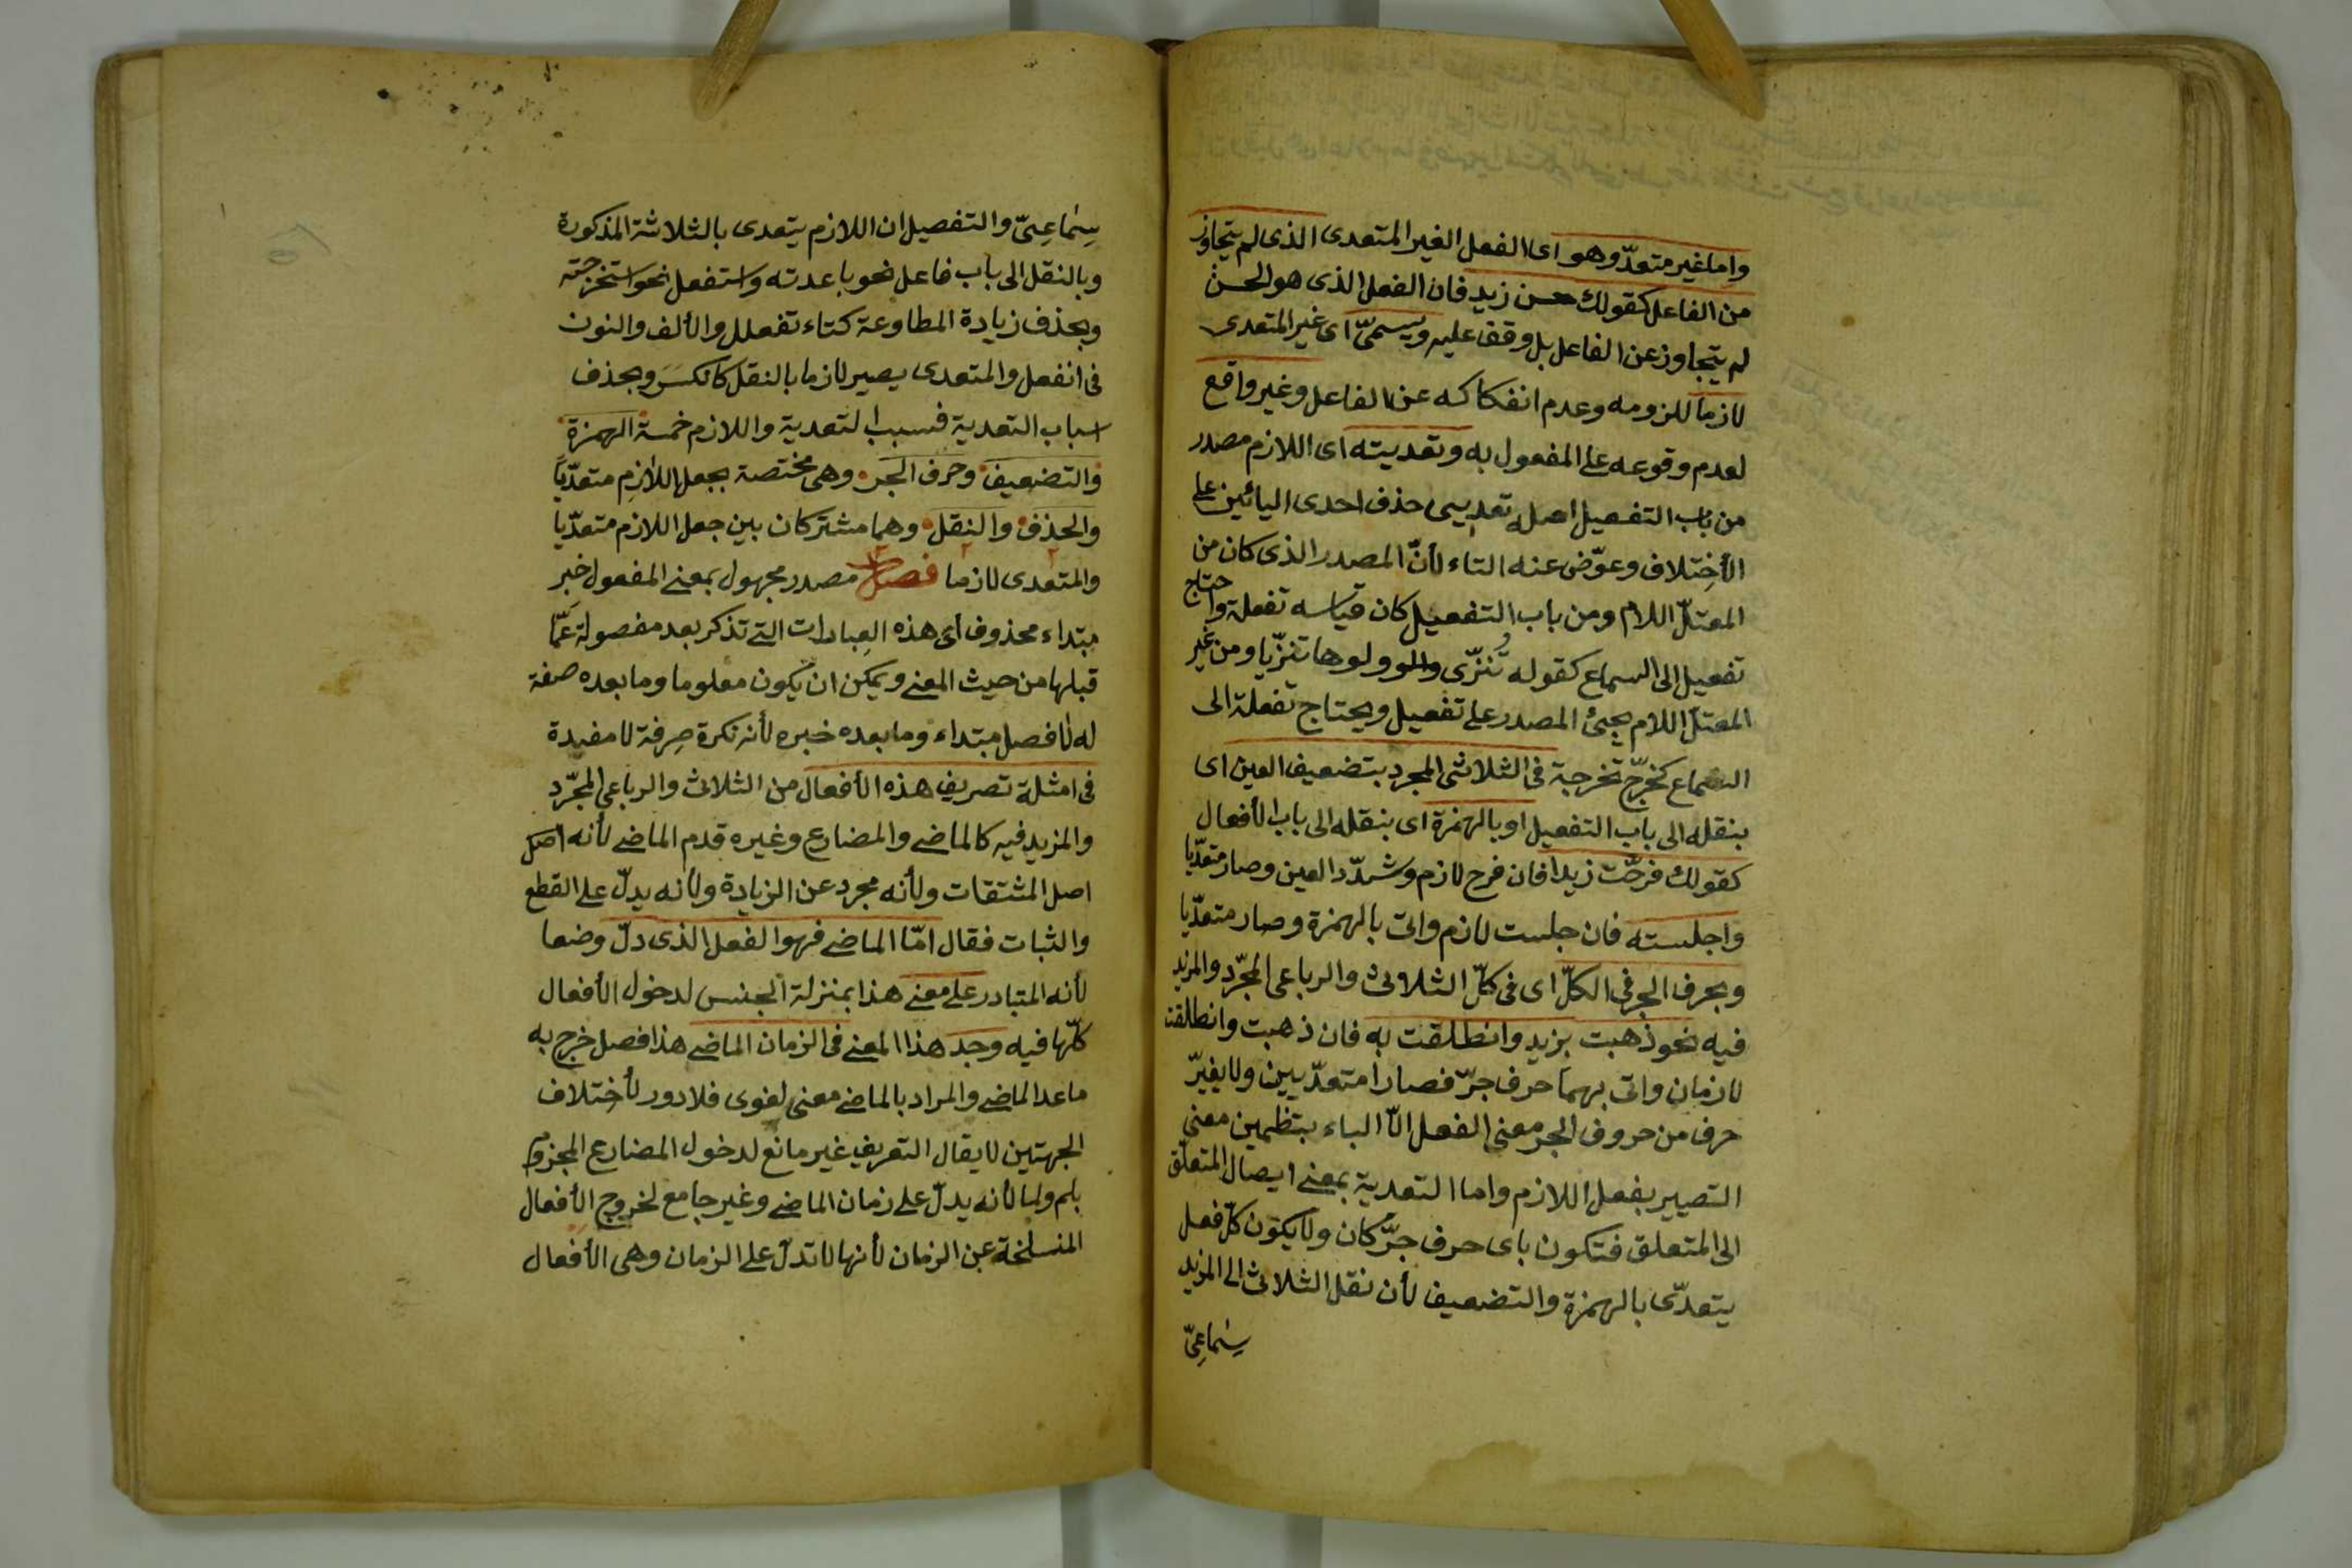 واما غير متعدّ وهو اى الفعل الغير المتعدى الذى لم يتجاوز
من الفاعل كقولك حسن زيد فان الفعل الذى هو الحسن
لم يتجاوز عن الفاعل بل وقف عليه ويسمىّ اى غير المتعدى
لازما للزومه وعدم انفكاكه عن الفاعل وغير واقع
لعدم وقوعه على المفعول به وتعديته اى اللازم مصدر
من باب التفعيل اصله تعديى حذف احدى اليائين على
الأختلاف وعوّض عنه التاء لأنّ المصدر الذى كان من
المعتلّ اللام ومن باب التفعيل كان قياسه تفعلة واحتاج
تفعيل الى السماع كقوله تُنزّى دلوها تنزّيا ومن غير
المعتل اللام يجئ المصدر على تفعيل ويحتاج تفعلة الى
السماع كخرّج تخرجة فى الثلاثى المجرد بتضعيف العين اى
بنقله الى باب التفعيل او بالهمزة اى بنقله الى باب الأفعال
كقولك فرحّت زيدا فان فرح لازم وشدّد العين وصار متعدّيا
واجلسته فان جلست لازم واتى بالهمزة وصار متعدّيا
وبحرف الجر فى الكلّ اى فى كلّ الثلاثى والرباعى المجرّد والمزيد
فيه نحو ذهبت بزيد وانطلقت به فان ذهبت وانطلقت
لازمان واتى بهما حرف جرّ فصارا متعدّيين ولا يغيّر
حرف من حروف الجر معنى الفعل الّا الباء بتظمين معنى
التصيير بفعل اللازم واما التعدية بمعنى ايصال المتعلّق
الى المتعلق فتكون باى حرف جرّ كان ولا يكون كلّ فعل
يتعدّى بالهمزة والتضعيف لأن نقل الثلاثى الى المزيد
سماعىّ
سماعىّ والتفصيل ان اللازم يتعدى بالثلاثة المذكورة
وبالنقل الى باب فاعل نحو باعدته واستفعل نحو استخرجته
وبحذف زيادة المطاوعة كتاء تفعلل والألف والنون
فى انفعل والمتعدى يصير لازما بالنقل كانكسر وبحذف
اسباب التعدية فسبب التعدية واللازم خمسة الهمزة
والتضعيف وحرف الجر وهى مختصة بجعل اللازم متعدّيا
والحذف والنقل وهما مشتركان بين جعل اللازم متعدّيا
والمتعدى لازما فصل مصدر مجهول بمعنى المفعول خبر
مبتداء محذوف أى هذه العبادات التى تذكر بعد مفصولة عمّا
قبلها من حيث المعنى ويمكن ان يكون معلوما وما بعده صفة
له لا فصل مبتداء وما بعده خبره لأنه نكرة صرفة لا مفيدة
فى امثلة تصريف هذه الأفعال من الثلاث والرباعى المجرّد
والمزيد فيه كالماضى والمضارع وغيره قدم الماضى لأنه اصل
اصل المشتقات ولأنه مجرد عن الزيادة ولأنه يدلّ على القطع
والثبات فقال امّا الماضى فهو الفعل الذى دلّ وضعا
لأنه المتبادر على معنى هذا بمنزلة الجنس لدخول الأفعال
كلّها فيه وجد هذا المعنى فى الزمان الماضى هذا فصل خرج به
ماعدا الماضى والمراد بالماضى معنى لغوى فلا دور لأختلاف
الجهتين لا يقال التعريف غير مانع لدخول المضارع المجزوم
بلم ولما لأنه يدلّ على زمان الماضى وغير جامع لخروج الأفعال
المنسلخة عن الزمان لأنها لا تدلّ على الزمان وهى الأفعال